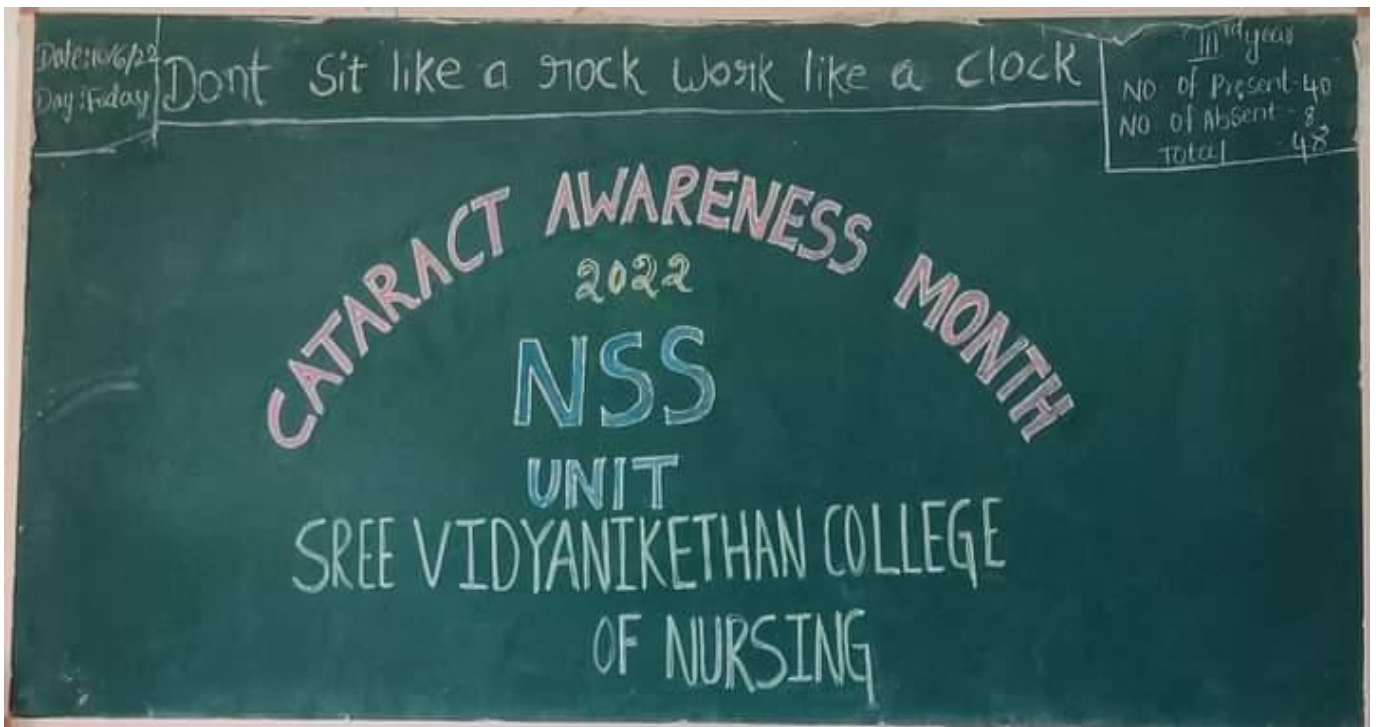 Date:10/6/22
Day:Friday
Dont sit like a rock work like a clock
III rd year
NO of Present-40
NO of Absent - 8
Total 48
CATARACT AWARENESS MONTH
2022
NSS
UNIT
SREE VIDYANIKETHAN COLLEGE
OF NURSING